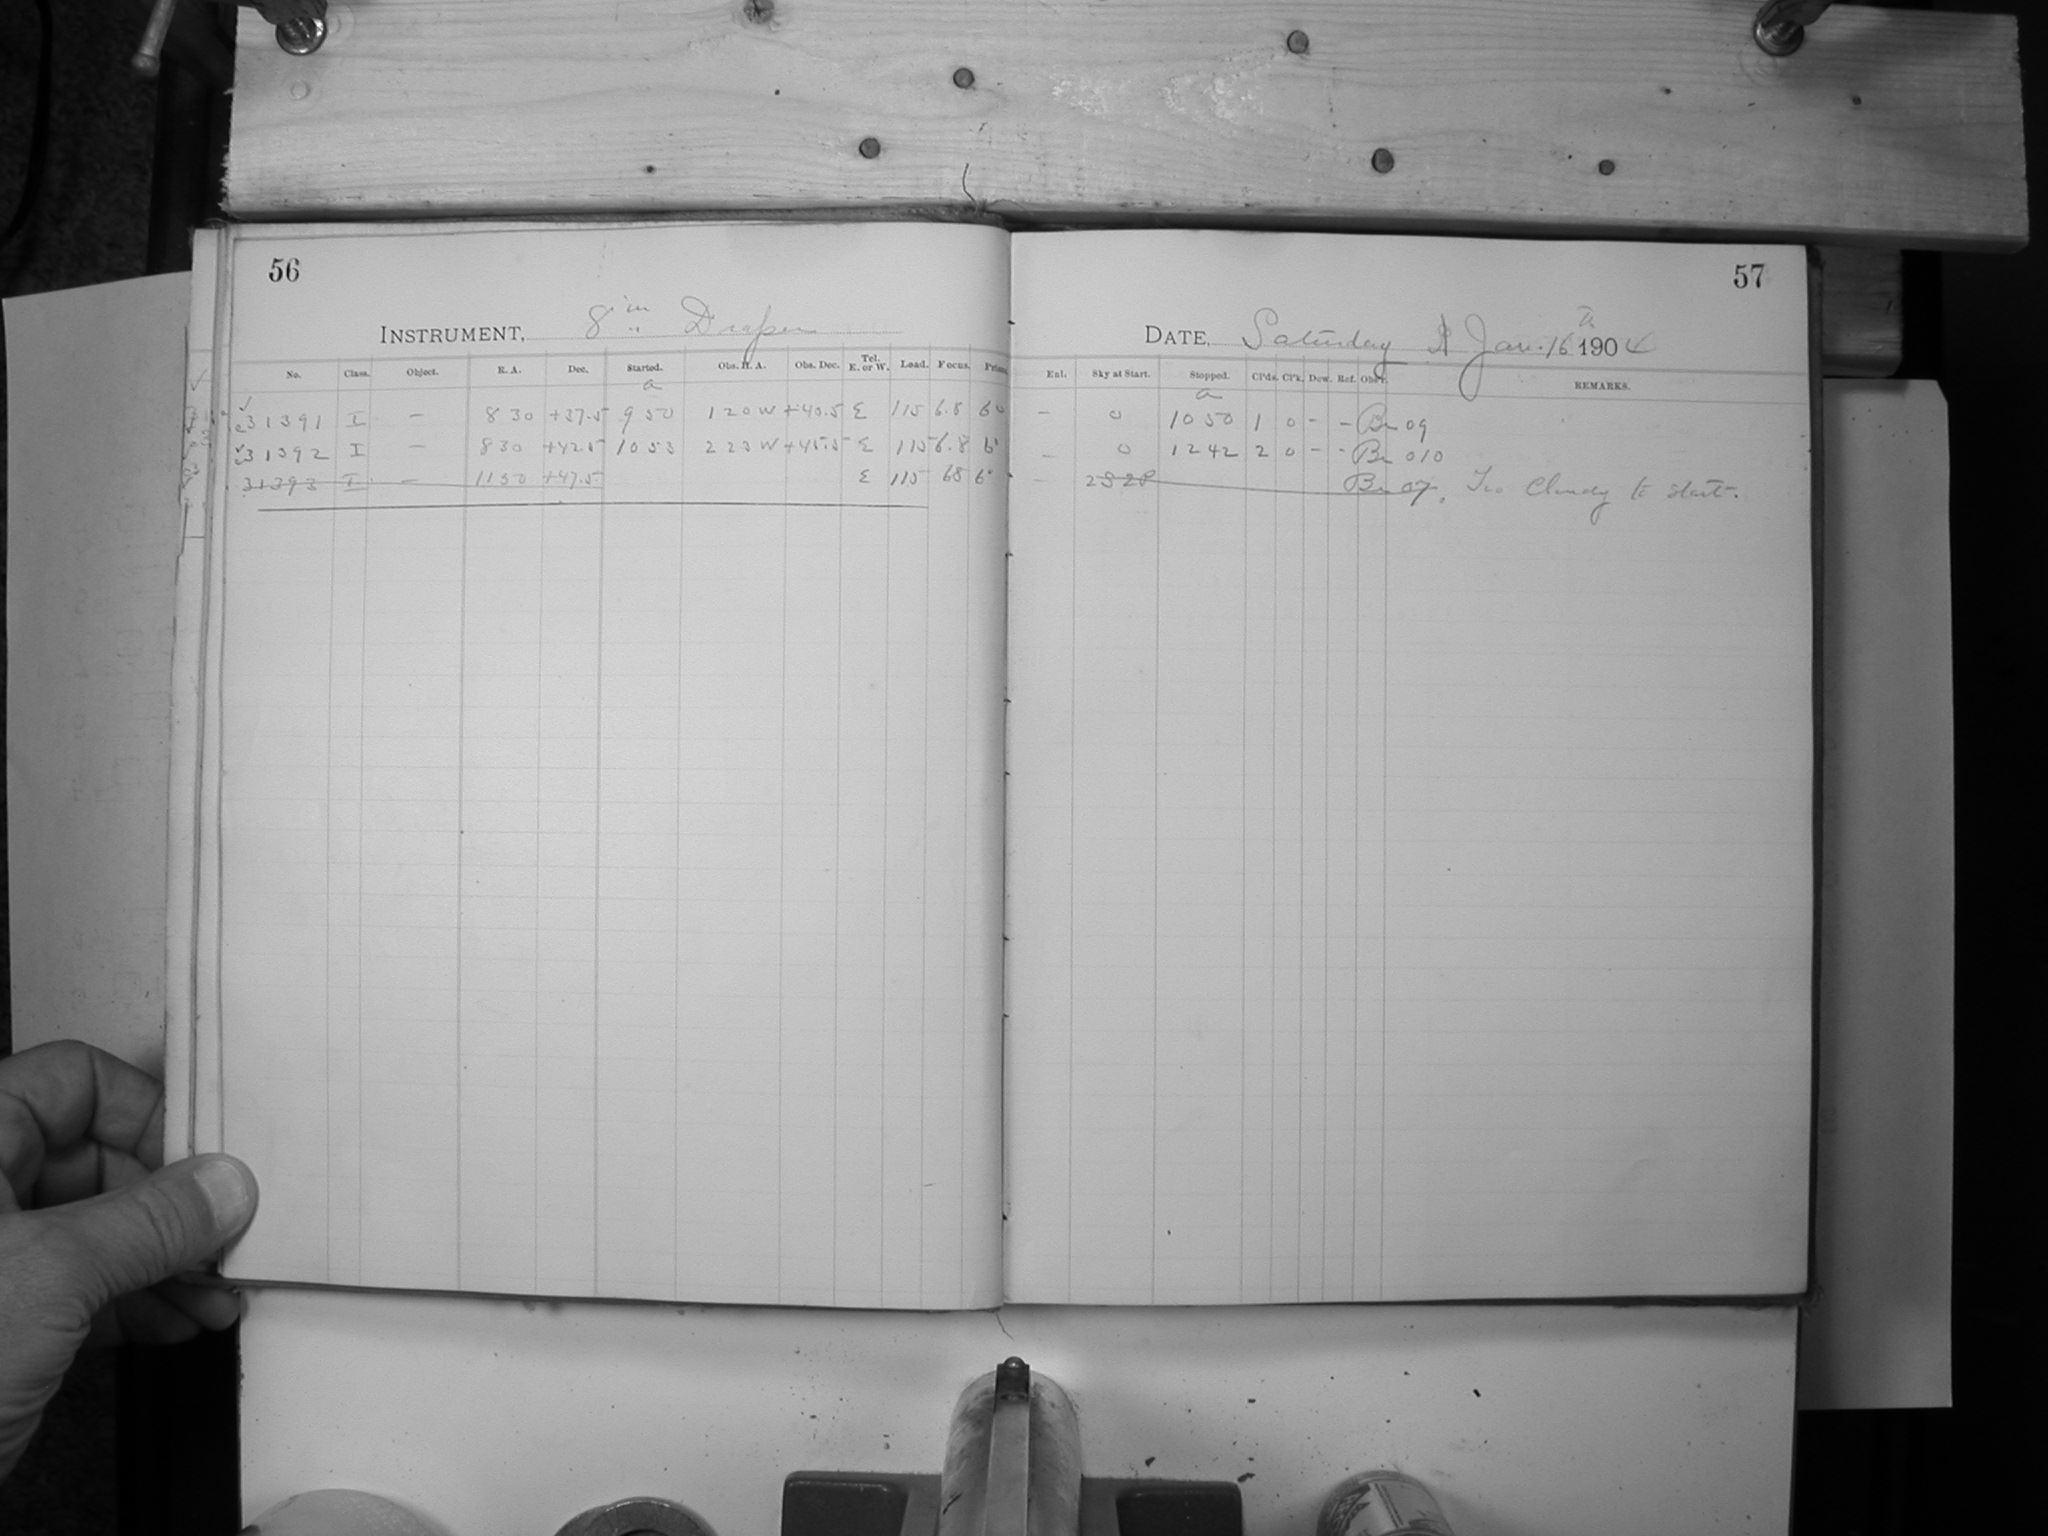 56
INSTRUMENT, 8 in Draper
No. Class. Object. R. A. Dec. Started. Obs. H. A. Obs. Dec. Tel. E. or W. Load. Focus. Prism.
a
31391 I — 8 30 +37.5 9 50 1 20 W +40.5 E 115 6.8 60
31392 I — 8 30 +42.5 10 53 2 23 W +45.5 E 115 6.8 6°
31393 I — 11 50 +47.5 E 115 68 6°
57
DATE, Saturday Jan. 16 th 1904
Ent. Sky at Start. Stopped. Cl'ds. Cl'k. Dew. Ref. Obs'r. REMARKS.
a
— 0 10 50 1 0 - - Bn 09
— 0 12 42 2 0 - - Bn 010
— 2S2P Bn 07, Too Cloudy to start.